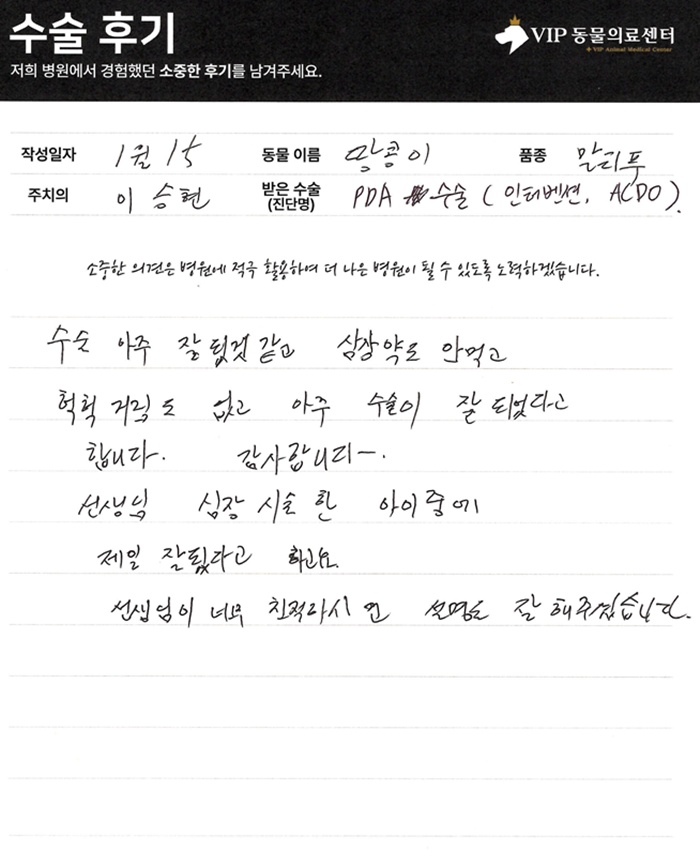 수술 후기
저희 병원에서 경험했던 소중한 후기를 남겨주세요.
VIP 동물의료센터
VIP Animal Medical Center
작성일자 1월 15 동물 이름 땅콩이 품종 말티푸
주치의 이승현 받은 수술 (진단명) PDA 수술 ( 인터벤션, ACDO ).
소중한 의견은 병원에 적극 활용하여 더 나은 병원이 될 수 있도록 노력하겠습니다.
수술 아주 잘 됬것 같고 심장약도 안먹고
헉헉 거림도 없고 아주 수술이 잘 되었다고
합니다. 감사합니다~.
선생님 심장 시술 한 아이중에
제일 잘됬다고 하고요.
선생님이 너무 친절하시면 설명도 잘 해주셨습니다.